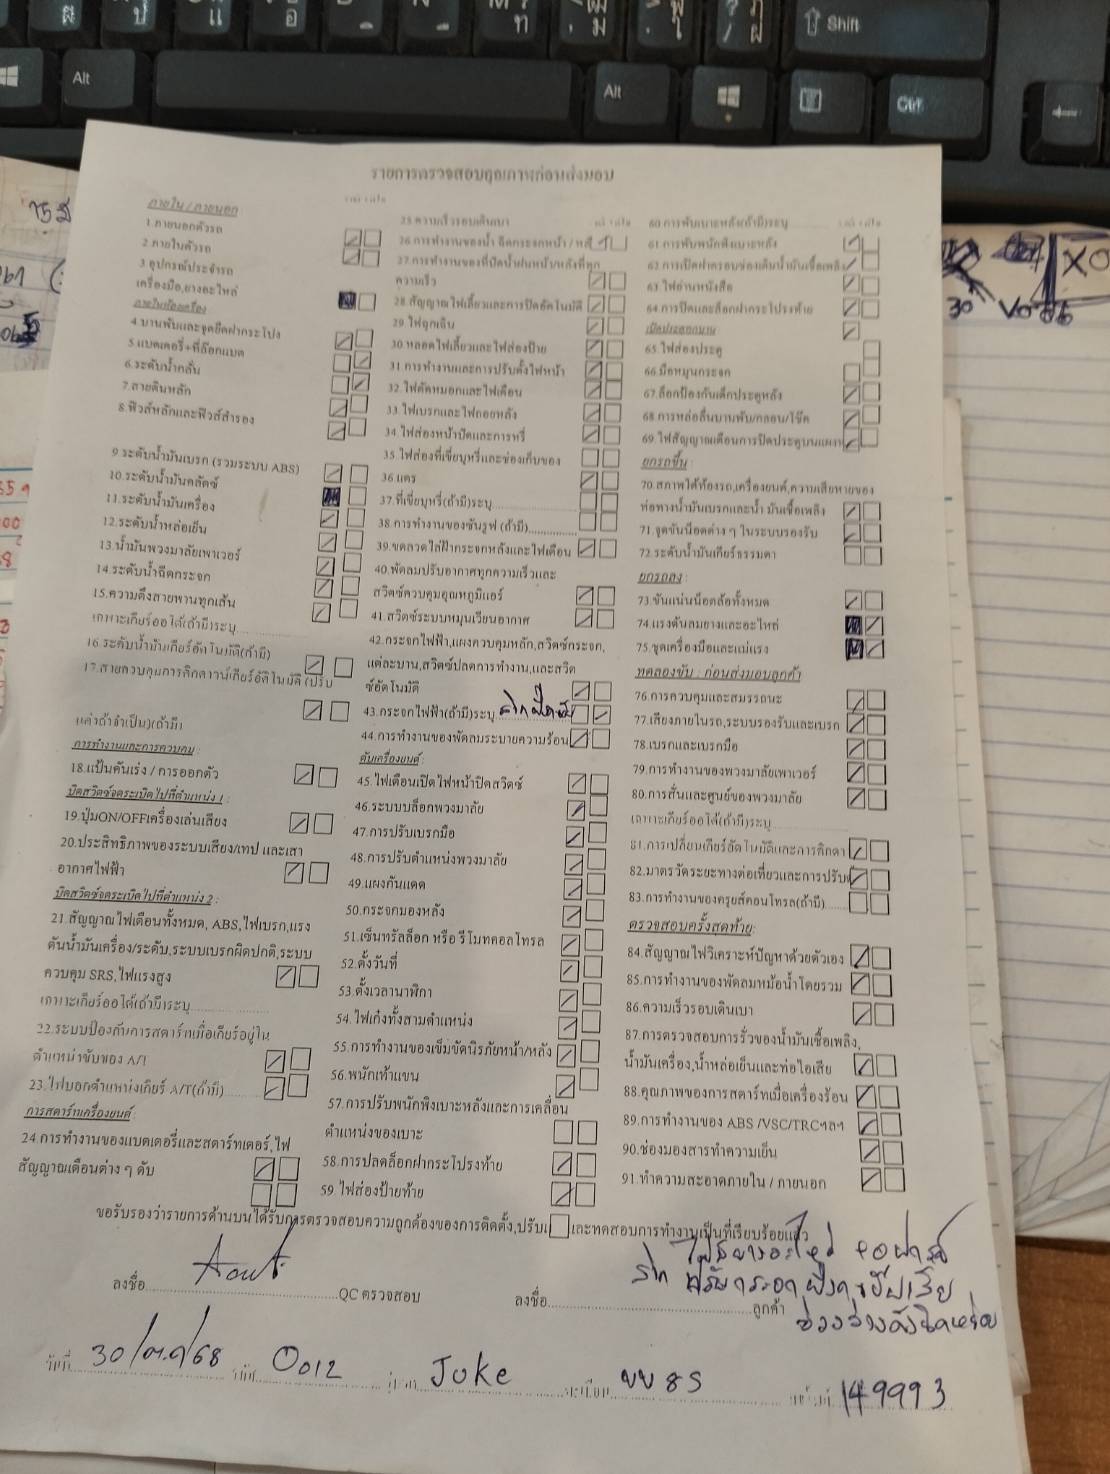 รายการตรวจสอบคุณภาพก่อนส่งมอบ
ภายใน / ภายนอก
1.ภายนอกตัวรถ
2.ภายในตัวรถ
3.อุปกรณ์ประจำรถ
เครื่องมือ,ยางอะไหล่
ภายในห้องเครื่อง
4.บานพับและจุดยึดฝากระโปรง
5.แบตเตอรี่+ที่ล๊อกแบต
6.ระดับน้ำกลั่น
7.สายดินหลัก
8.ฟิวส์หลักและฟิวส์สำรอง
9.ระดับน้ำมันเบรก (รวมระบบ ABS)
10.ระดับน้ำมันคลัตช์
11.ระดับน้ำมันเครื่อง
12.ระดับน้ำหล่อเย็น
13.น้ำมันพวงมาลัยเพาเวอร์
14.ระดับน้ำฉีดกระจก
15.ความตึงสายพานทุกเส้น
เฉพาะเกียร์ออโต้(ถ้ามี)ระบุ
16.ระดับน้ำมันเกียร์อัตโนมัติ(ถ้ามี)
17.สายควบคุมการคิกดาวน์เกียร์อัตโนมัติ (ปรับ
แต่งถ้าจำเป็น)(ถ้ามี)
การทำงานและการควบคุม :
18.แป้นคันเร่ง / การออกตัว
บิดสวิตซ์จุดระเบิดไปที่ตำแหน่ง 1 :
19.ปุ่มON/OFFเครื่องเล่นเสียง
20.ประสิทธิภาพของระบบเสียง/เทป และเสา
อากาศไฟฟ้า
บิดสวิตซ์จุดระเบิดไปที่ตำแหน่ง 2 :
21.สัญญาณไฟเตือนทั้งหมด, ABS,ไฟเบรก,แรง
ดันน้ำมันเครื่อง/ระดับ,ระบบเบรกผิดปกติ,ระบบ
ควบคุม SRS,ไฟแรงสูง
เฉพาะเกียร์ออโต้(ถ้ามี)ระบุ
22.ระบบป้องกันการสตาร์ทเมื่อเกียร์อยู่ใน
ตำแหน่งขับของ A/T
23.ไฟบอกตำแหน่งเกียร์ A/T(ถ้ามี)
การสตาร์ทเครื่องยนต์ :
24.การทำงานของแบตเตอรี่และสตาร์ทเตอร์,ไฟ
สัญญาณเตือนต่าง ๆ ดับ
25.ความเร็วรอบเดินเบา
26.การทำงานของน้ำ ฉีดกระจกหน้า / หลัง
27.การทำงานของที่ปัดน้ำฝนหน้า/หลังที่ทุก
ความเร็ว
28.สัญญาณไฟเลี้ยวและการปิดอัตโนมัติ
29.ไฟฉุกเฉิน
30.หลอดไฟเลี้ยวและไฟส่องป้าย
31.การทำงานและการปรับตั้งไฟหน้า
32.ไฟตัดหมอกและไฟเตือน
33.ไฟเบรกและไฟถอยหลัง
34.ไฟส่องหน้าปัดและการหรี่
35.ไฟส่องที่เขี่ยบุหรี่และช่องเก็บของ
36.แตร
37.ที่เขี่ยบุหรี่(ถ้ามี)ระบุ
38.การทำงานของซันรูฟ (ถ้ามี)
39.ขดลวดไล่ฝ้ากระจกหลังและไฟเตือน
40.พัดลมปรับอากาศทุกความเร็วและ
สวิตซ์ควบคุมอุณหภูมิแอร์
41.สวิตซ์ระบบหมุนเวียนอากาศ
42.กระจกไฟฟ้า,แผงควบคุมหลัก,สวิตซ์กระจก,
แต่ละบาน,สวิตซ์ปลดการทำงาน,และสวิต
ซ์อัตโนมัติ
43.กระจกไฟฟ้า(ถ้ามี)ระบุ
44.การทำงานของพัดลมระบายความร้อน
ดับเครื่องยนต์ :
45.ไฟเตือนเปิดไฟหน้าปิดสวิตซ์
46.ระบบบล็อกพวงมาลัย
47.การปรับเบรกมือ
48.การปรับตำแหน่งพวงมาลัย
49.แผงกันแดด
50.กระจกมองหลัง
51.เซ็นทรัลล็อก หรือ รีโมทคอลโทรล
52.ตั้งวันที่
53.ตั้งเวลานาฬิกา
54.ไฟเก๋งทั้งสามตำแหน่ง
55.การทำงานของเข็มขัดนิรภัยหน้า/หลัง
56.พนักเท้าแขน
57.การปรับพนักพิงเบาะหลังและการเคลื่อน
ตำแหน่งของเบาะ
58.การปลดล็อกฝากระโปรงท้าย
59.ไฟส่องป้ายท้าย
60.การพับเบาะหลัง(ถ้ามี)ระบุ
61.การพับพนักพิงเบาะหลัง
62.การเปิดฝาครอบช่องเติมน้ำมันเชื้อเพลิง
63.ไฟอ่านหนังสือ
64.การปิดและล็อกฝากระโปรงท้าย
เปิดประตูทุกบาน
65.ไฟส่องประตู
66.มือหมุนกระจก
67.ล็อกป้องกันเด็กประตูหลัง
68.การหล่อลื่นบานพับ/กลอน/โช๊ค
69.ไฟสัญญาณเตือนการปิดประตูบนแผง
ยกรถขึ้น :
70.สภาพใต้ท้องรถ,เครื่องยนต์,ความเสียหายของ
ท่อทางน้ำมันเบรกและน้ำ มันเชื้อเพลิง
71.จุดขันน็อตต่าง ๆ ในระบบรองรับ
72.ระดับน้ำมันเกียร์ธรรมดา
ยกรถลง :
73.ขันแน่นน็อตล้อทั้งหมด
74.แรงดันลมยางและอะไหล่
75.ชุดเครื่องมือและแม่แรง
ทดลองขับ : ก่อนส่งมอบลูกค้า
76.การควบคุมและสมรรถนะ
77.เสียงภายในรถ,ระบบรองรับและเบรก
78.เบรกและเบรกมือ
79.การทำงานของพวงมาลัยเพาเวอร์
80.การสั่นและศูนย์ของพวงมาลัย
เฉพาะเกียร์ออโต้(ถ้ามี)ระบุ
81.การเปลี่ยนเกียร์อัตโนมัติและการคิกดา
82.มาตรวัดระยะทางต่อเที่ยวและการปรับ
83.การทำงานของครูยส์คอนโทรล(ถ้ามี)
ตรวจสอบครั้งสุดท้าย:
84.สัญญาณไฟวิเคราะห์ปัญหาด้วยตัวเอง
85.การทำงานของพัดลมหม้อน้ำโดยรวม
86.ความเร็วรอบเดินเบา
87.การตรวจสอบการรั่วของน้ำมันเชื้อเพลิง,
น้ำมันเครื่อง,น้ำหล่อเย็นและท่อไอเสีย
88.คุณภาพของการสตาร์ทเมื่อเครื่องร้อน
89.การทำงานของ ABS /VSC/TRCฯลฯ
90.ช่องมองสารทำความเย็น
91.ทำความสะอาดภายใน / ภายนอก
ขอรับรองว่ารายการด้านบนได้รับการตรวจสอบความถูกต้องของการติดตั้ง,ปรับ และทดสอบการทำงานเป็นที่เรียบร้อยแล้ว
ลงชื่อ QC ตรวจสอบ ลงชื่อ ลูกค้า
วันที่ 30/ต.ค/68 รหัส 0012 รุ่น Juke ทะเบียน ขข 85 149993